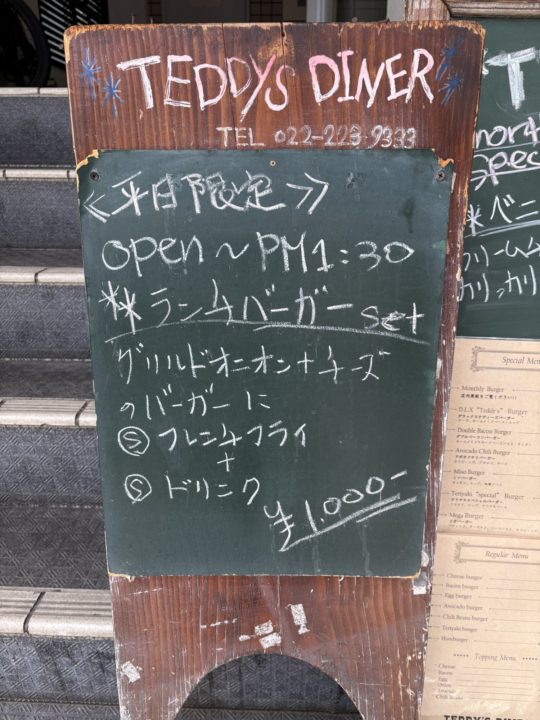 TEDDYS DINER
TEL 022-223-9333
≪平日限定≫
open～PM1:30
**ランチバーガー set
グリルドオニオン+チーズ
のバーガーに
Ⓢ フレンチフライ
+
Ⓢ ドリンク
¥1.000-
T
Spec
*ベニ
Special Men
Monthly Burger
D.L.X "Teddy's" Burger
Double Bacon Burger
Avocado Chili Burger
Miso Burger
Teriyaki "special" Burger
Mega Burger
Regular Menu
Cheese burger
Bacon burger
Egg burger
Avocado burger
Chili Beans burger
Teriyaki burger
Humburger
Topping Menu
Cheese
Bacon
Egg
Onion
Avocado
Chili Beans
TEDDY'S DINE